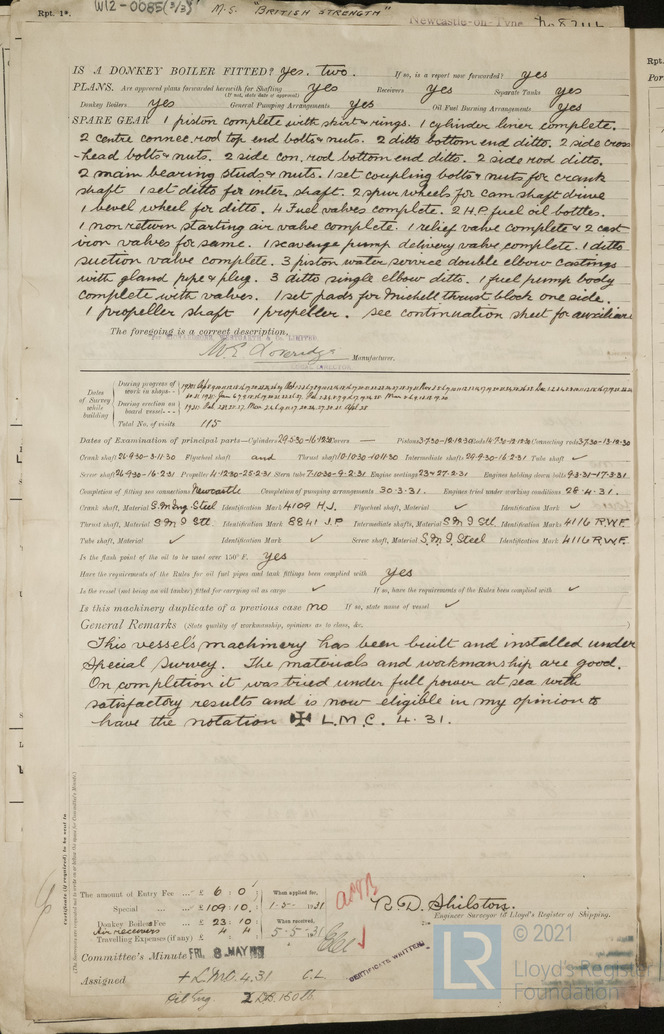 W12-0085(3/3) M.S. "BRITISH STRENGTH"
Rpt. 1*. Newcastle-on-Tyne No 87116
IS A DONKEY BOILER FITTED? yes. two. If so, is a report now forwarded? yes
PLANS. Are approved plans forwarded herewith for Shafting yes Receivers yes Separate Tanks yes
(If not, state date of approval)
Donkey Boilers yes General Pumping Arrangements yes Oil Fuel Burning Arrangements yes
SPARE GEAR 1 piston complete with skirt & rings. 1 cylinder liner complete.
2 centre connec. rod top end bolts & nuts. 2 ditto bottom end ditto. 2 side cross
-head bolts & nuts. 2 side con. rod bottom end ditto. 2 side rod ditto.
2 main bearing studs & nuts. 1 set coupling bolts & nuts for crank
shaft 1 set ditto for inter. shaft. 2 spur wheels for camshaft drive
1 bevel wheel for ditto. 4 Fuel valves complete. 2 H.P. fuel oil bottles.
1 non return starting air valve complete. 1 relief valve complete & 2 cast
iron valves for same. 1 scavenge pump delivery valve complete. 1 ditto
suction valve complete. 3 piston water service double elbow castings
with gland pipe & plug. 3 ditto single elbow ditto. 1 fuel pump body
complete with valves. 1 set pads for Michell thrust block one side.
1 propeller shaft 1 propeller. see continuation sheet for auxiliaries
The foregoing is a correct description,
Manufacturer.
Dates of Survey while building
During progress of work in shops--
During erection on board vessel---
Total No. of visits 115
Dates of Examination of principal parts—Cylinders 29.5.30-16.12.30 Covers — Pistons 3.7.30-12.12.30 Rods 14.7.30-12.12.30 Connecting rods 3.7.30-13.12.30
Crank shaft 26.9.30-3.11.30 Flywheel shaft and Thrust shaft 10.10.30-10.11.30 Intermediate shafts 29.9.30-16.2.31 Tube shaft ✓
Screw shaft 26.9.30-16.2.31 Propeller 4.12.30-25.2.31 Stern tube 7.10.30-9.2.31 Engine seatings 23 & 27.2.31 Engines holding down bolts 9.3.31-17.3.31
Completion of fitting sea connections Newcastle Completion of pumping arrangements 30.3.31. Engines tried under working conditions 28.4.31.
Crank shaft, Material S.M. Ing. Steel Identification Mark 4109 H.J. Flywheel shaft, Material ✓ Identification Mark ✓
Thrust shaft, Material S.M.I. Stl. Identification Mark 8841 J.P Intermediate shafts, Material S.M.I. Stl. Identification Marks 4116 R.W.F.
Tube shaft, Material ✓ Identification Mark ✓ Screw shaft, Material S.M.I. Steel Identification Mark 4116 R.W.F.
Is the flash point of the oil to be used over 150° F. yes
Have the requirements of the Rules for oil fuel pipes and tank fittings been complied with yes
Is the vessel (not being an oil tanker) fitted for carrying oil as cargo ✓ If so, have the requirements of the Rules been complied with ✓
Is this machinery duplicate of a previous case no If so, state name of vessel ✓
General Remarks (State quality of workmanship, opinions as to class, &c.
This vessel's machinery has been built and installed under
Special Survey. The materials and workmanship are good.
On completion it was tried under full power at sea with
satisfactory results and is now eligible in my opinion to
have the notation ✠ L.M.C. 4.31.
The amount of Entry Fee ... £ 6 : 0 : When applied for,
Special ... £ 109 : 10 : 1.5. 1931
Donkey Boiler Fee ... £ 23 : 10 : When received,
Air receivers 4 4
Travelling Expenses (if any) £ 5.5.31
R.D. Shilston.
Engineer Surveyor to Lloyd's Register of Shipping.
Committee's Minute FRI. 8 MAY 1931
Assigned + L.M.C. 4.31 C.L.
Oil Eng. 2 D.B. 150 lb
CERTIFICATE WRITTEN
© 2021
Lloyd's Register
Foundation
LR
Rpt.
Por